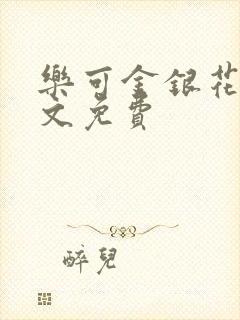 樂可金銀花
文免費
醉兒